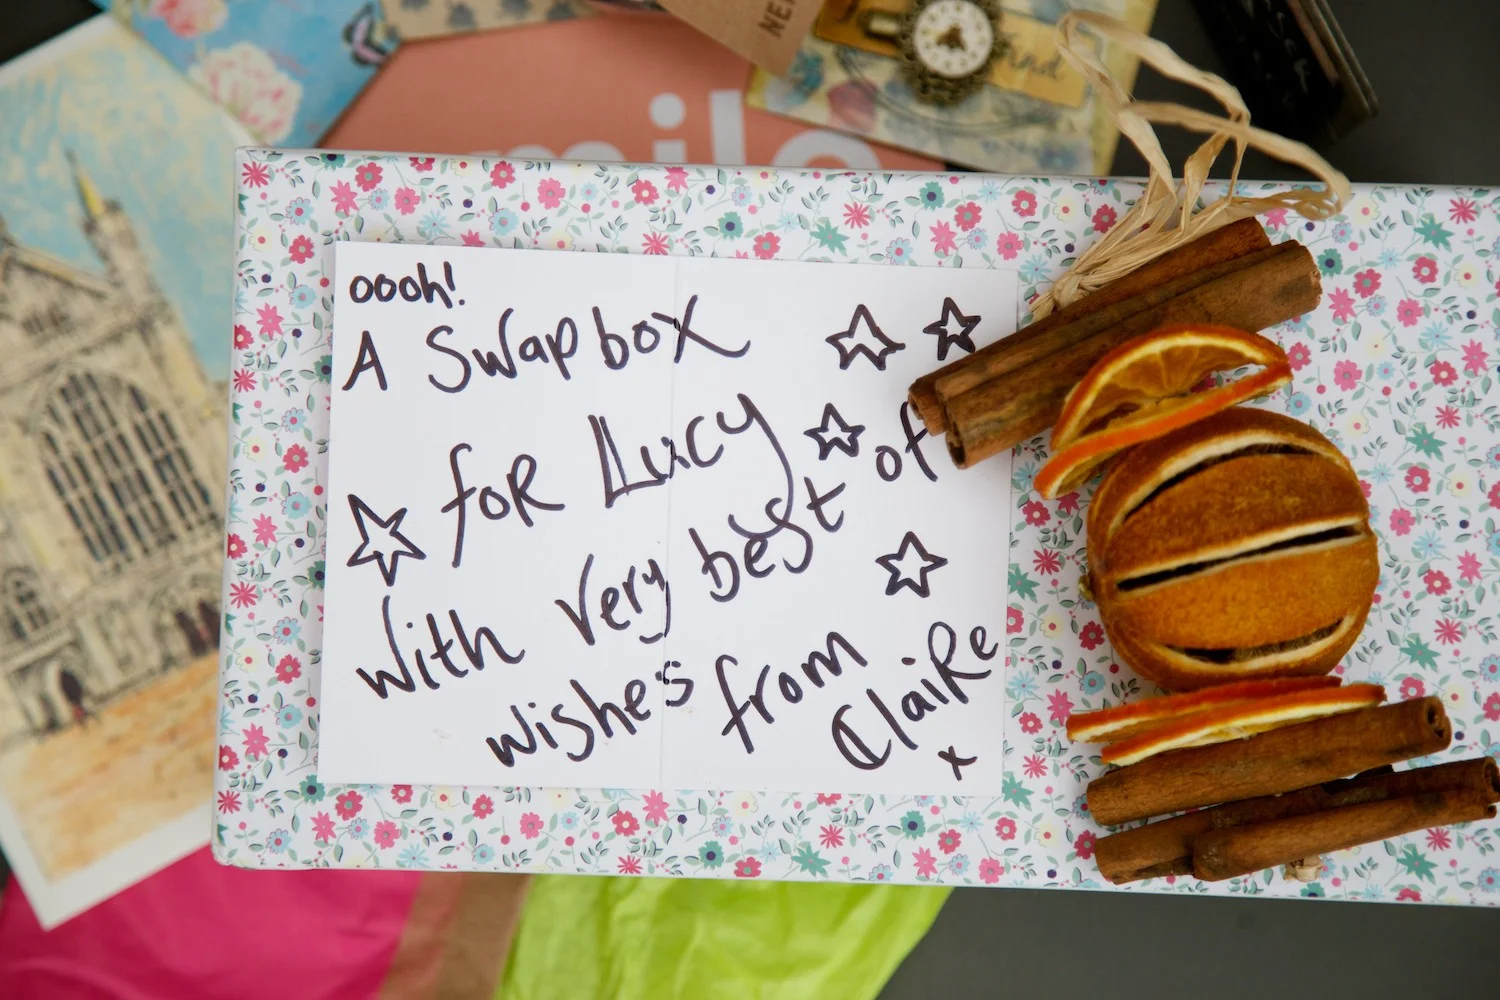 NEW
find
milo
oooh!
A Swap box
for Lucy
with very best of
wishes from
Claire
x